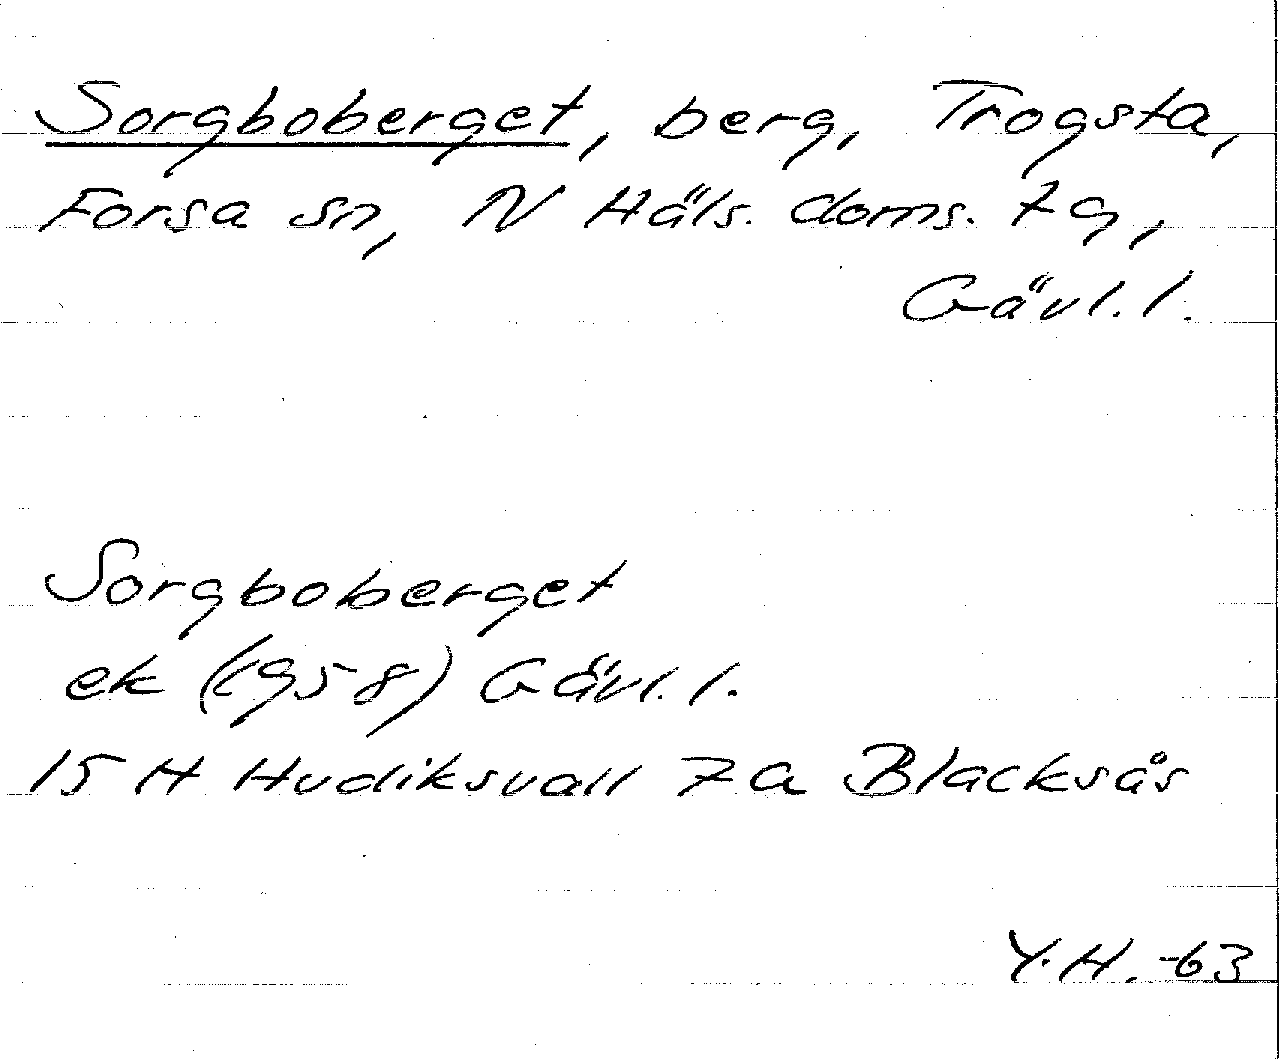 Sorgboberget, berg, Trogsta,
Forsa sn, N Häls. doms. 7g,
Gävl. l.
Sorgboberget
ek (1958) Gävl. l.
15 H Hudiksvall 7a Blacksås
Y.H. -63